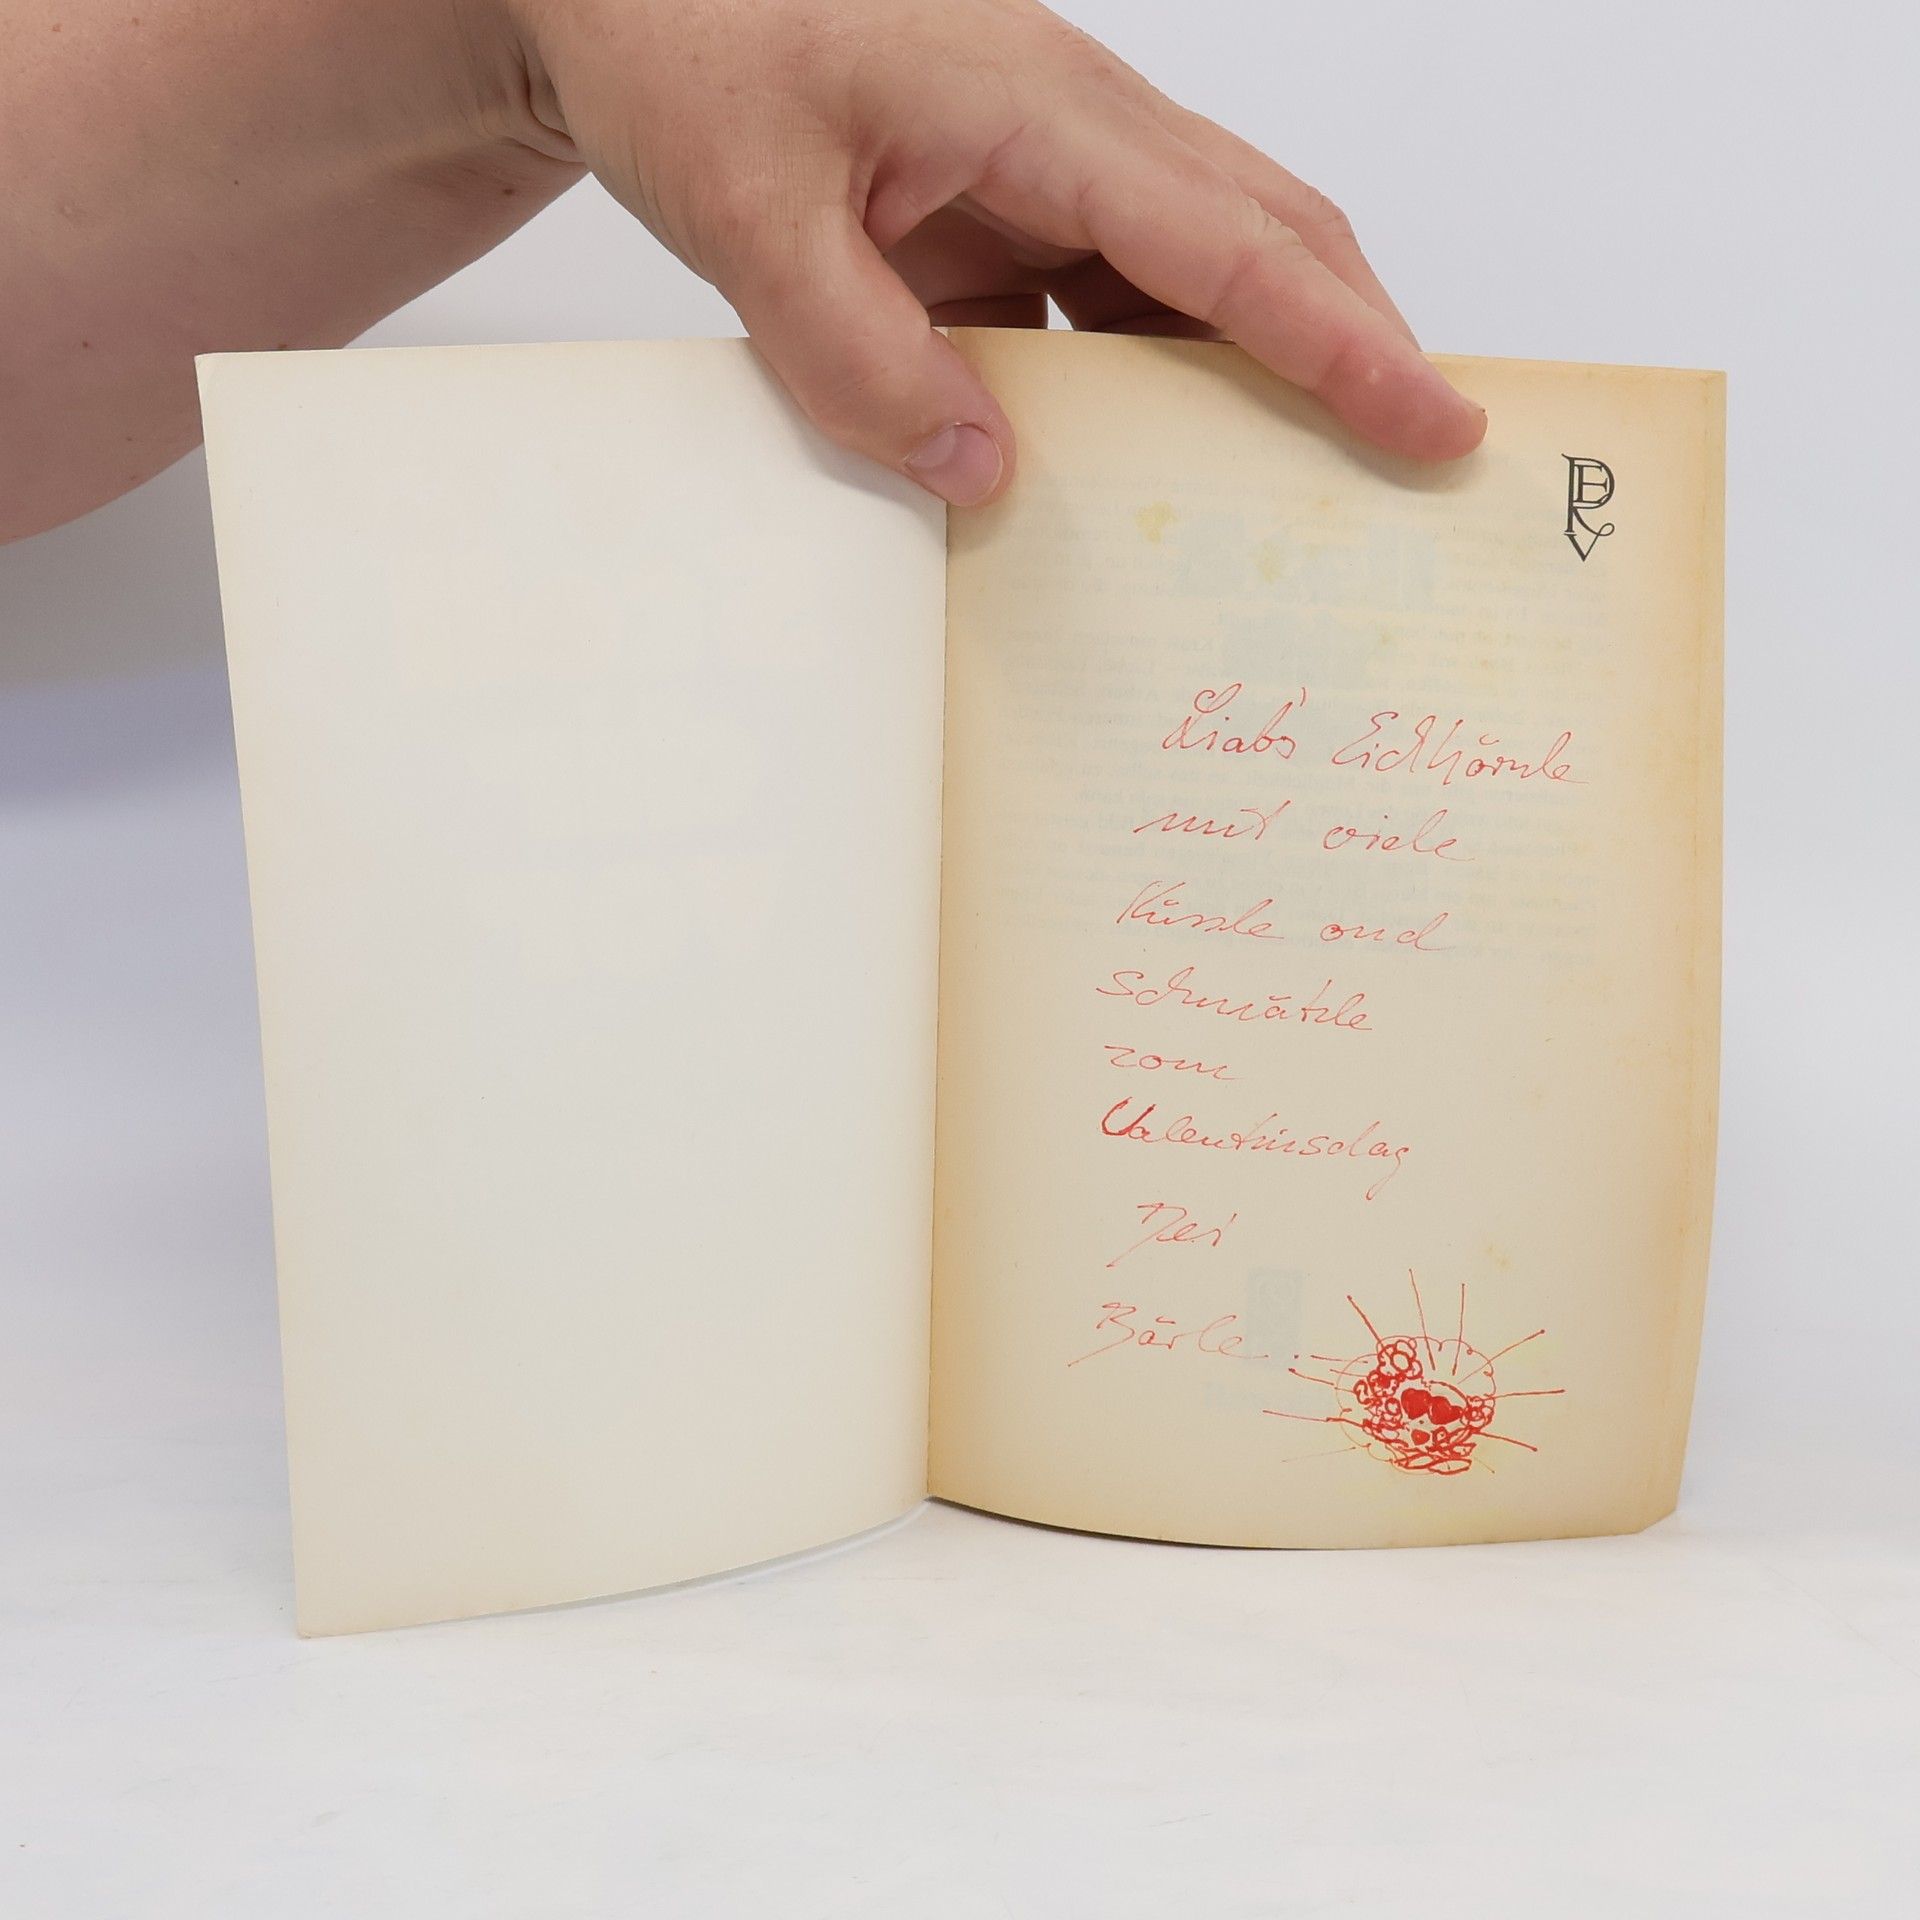 PERV
Liab's Eichhörnle
mit viele
Küssle ond
Schmätzle
zom
Valentinsdag
Dei
Bärle.